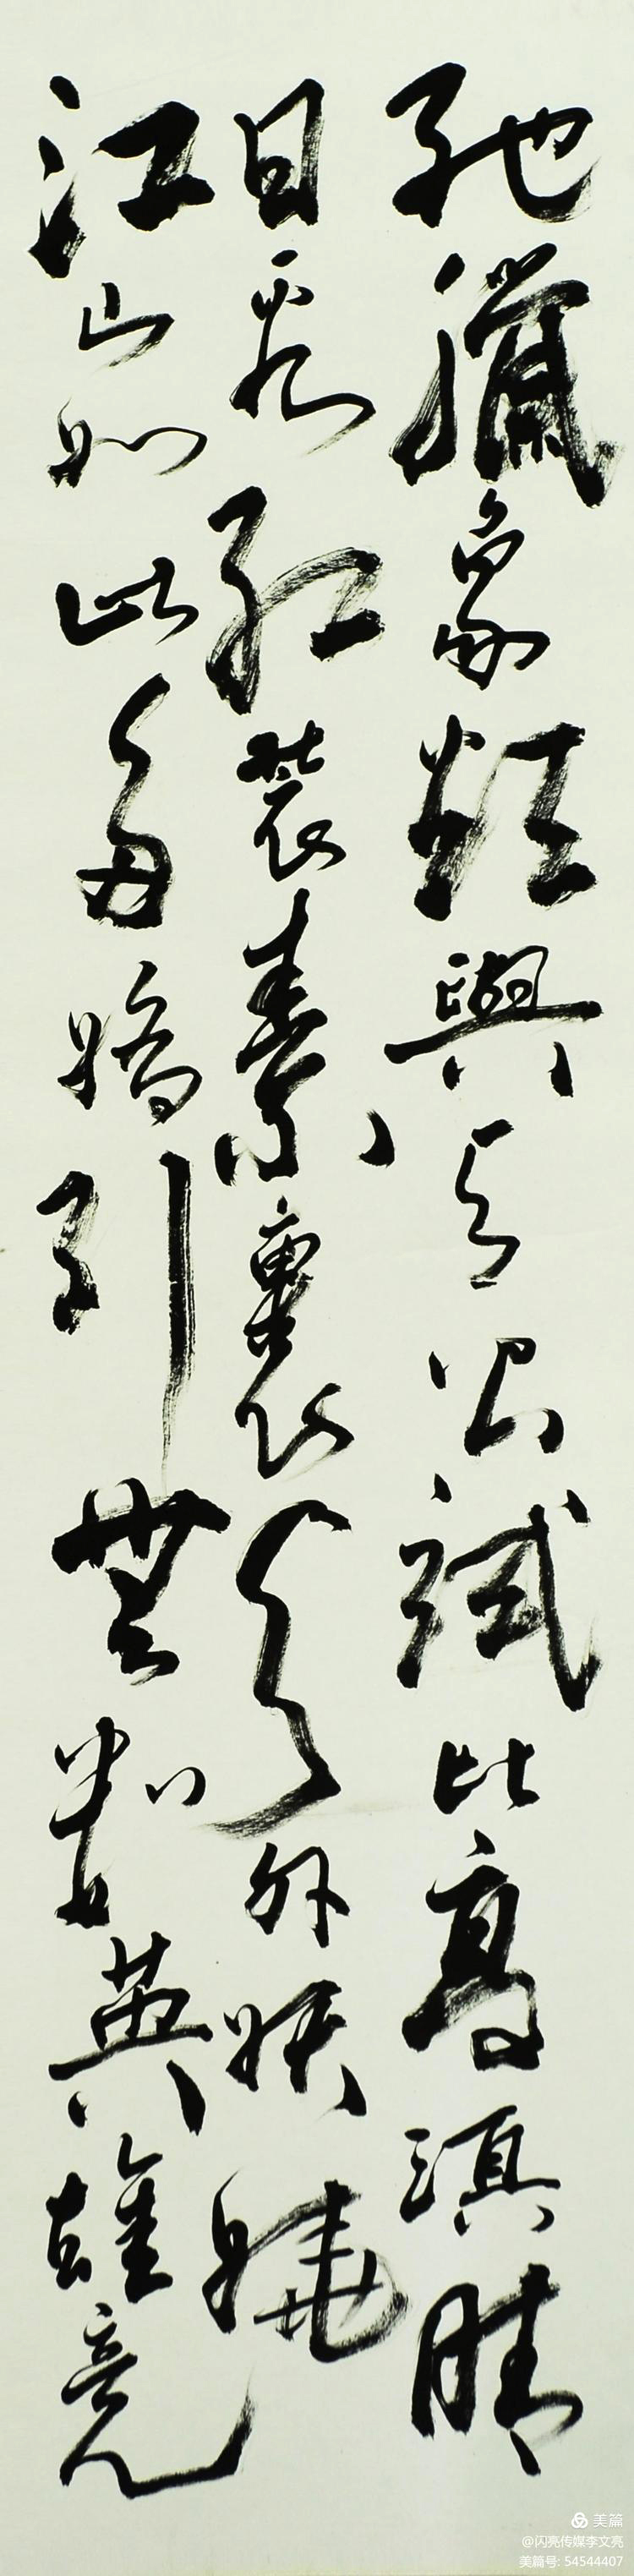 馳臘象欲與天公試比高須晴
日看紅裝素裹分外妖嬈
江山如此多嬌引無數英雄竞
美篇
@闪亮传媒李文亮
美篇号: 54544407